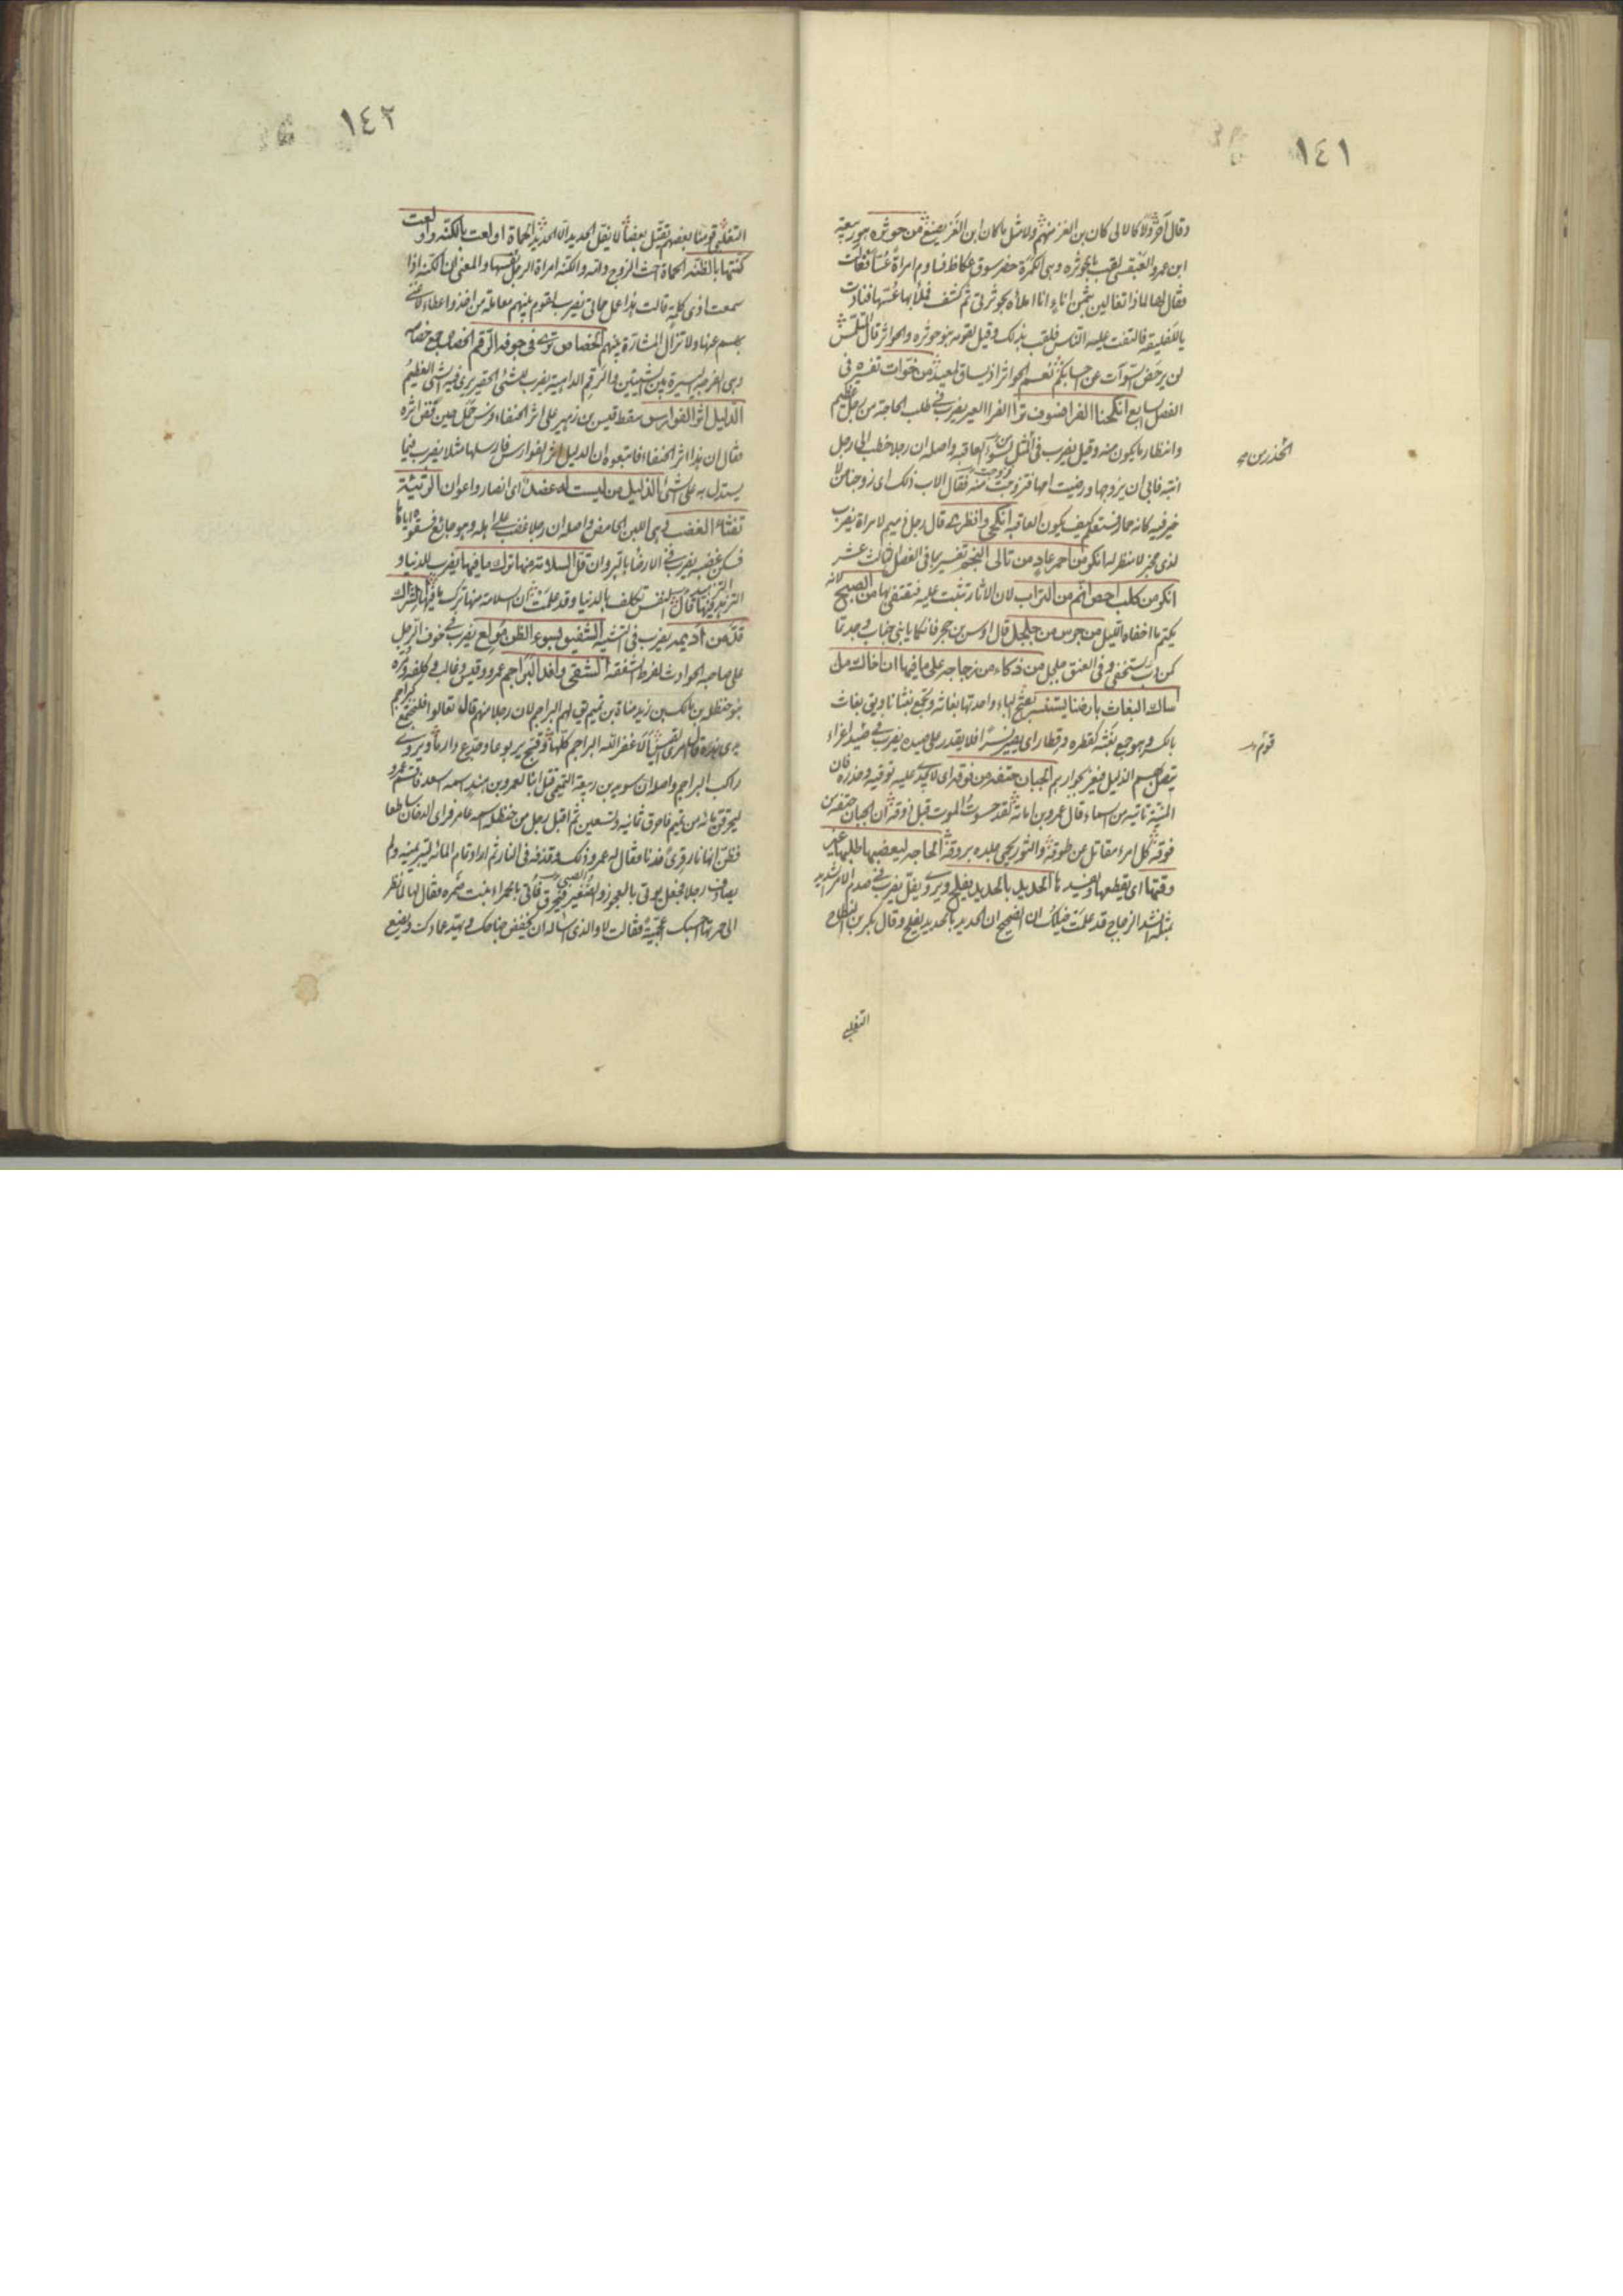 ١٤١
وقال آخر ولا كالالى كان بن الغز منهم ولا مثل ما كان ابن الغز يصنع من حوثره هو ربيعة
ابن عمرو العبقسى لقب بالحوثره وهى الكمرة حضر سوق عكاظ فساوم امراة عسا فغالت
فقال لها لماذا تغالين بثمن اناء انا املأه بحوثرتى ثم كشف فملأ بها عسها فنادت
يا للفليقة فالتفت عليه الناس فلقب بذلك وقيل لقومه بنو حوثره والحواثر قال المتلمس
لن يرحض السوآت عن احسابكم نعم الحواثر اذ يساق لمعبد من خوات تفسيره فى
الفصل السابع انكحنا الفرا فسوف ترا الفرا العير يضرب فى طلب الحاجة من رجل عظيم
وانتظار ما يكون منه وقيل يضرب فى التحذير من سوء العاقبه واصله ان رجلا خطب الى رجل
ابنته فابى ان يزوجها ورضيت امها فتزوجت منه فقال الاب ذلك اى زوجنا من لا
خير فيه كانه حمار فستعلم كيف يكون العاقبه انكحى وانظرى قال رجل دميم لامراة يضرب
لذى مخبر لا منظر له انكر من احمر عاد من تالى النجم تفسيرها فى الفصل الثالث عشر
انكر من كلب احص انم من التراب لان الاثار تثبت عليه فتقتفى بها من الصبح لانه
يكتم ما اخفاه الليل من جرس من جلجل قال اوس بن حجر فانكما يا بنى خباب وجدتما
كمن دب يستخفى وفى العنق جلجل من ذكاء من زجاجة على ما فيها ان اخالت مل
اساك البغاث بارضنا يستنسر بفتح الباء واحدتها بغاثه ويجمع بغثانا ويقق بغاث
بالكسر وهو جمع بغثه كقطره وقطار اى يصير نسرا فلا يقدر على صيده يضرب فى صيد اعزاء
يتصل بهم الذليل فيعز بجوارهم الجبان حتفه من فوقه اى لا يجدى عليه توقيه وحذره فان
المنية تاتيه من السماء قال عمرو بن امامة لقد حسوت الموت قبل ذوقه ان الجبان حتفه من
فوقه كل امرء مقاتل عن طوقه والثور يحمى جلده بروقه الحاجه ليعضبها طلبها غير
وقتها اى يقطعها ويفسدها الحديد بالحديد يفلح ويروى يفل يضرب فى صدم الامر الشديد
بمثله انشد الزجاج قد علمت خيلك ان الصحصح ان الحديد بالحديد يفلح وقال بكر بن النطاح
التغلبى
الحذر من
قوم
١٤٢
التغلبى قومنا بعضهم يقتل بعضا لا يفل الحديد الا الحديد الحماة اولعت بالكنه واولعت
كنتها بالظنه الحماة اخت الزوج وامه والكنه امراة الرجل نفسها والمعنى ان الكنه اذا
سمعت اذى كلمه قالت هذا عمل حماتى يضرب لقوم بينهم معاملة من اخذ واعطاء لا غنى
بهم عنها ولا تزال المشارة بينهم الخصاص يرى فى جوفه الرقم الخصاص جمع خصاصه
وهى الفرجه اليسيرة بين الشيئين والرقم الداهية يضرب للشئ الحقير يرى فيه الشئ العظيم
الدليل اثر الفوارس سقط قيس بن زهير على اثر الخنفاء فرس حمل حين اثره
فقال ان هذا اثر الخنفا فاتبعوه ان الدليل اثر الفوارس فارسلها مثلا يضرب فيما
يستدل به على الشئ الذليل من ليست له عضد اى انصار واعوان الرثيئة
تفثأ الغضب هى اللبن الحامض واصله ان رجلا غضب على اهله وهو جائع فسقوه اياها
فسكن غضبه يضرب فى الارضاء بالبر وان قل السلامة منها ترك ما فيها يضرب للدنيا و
التزهيد فيها قال النفس تكلف بالدنيا وقد علمت ان السلامة منها ترك ما فيها الشراك
قد من اديمه يضرب فى الشبه الشفيق بسوء الظن مولع يضرب فى خوف الرجل
على صاحبه الحوادث لفرط الشفقه الشقى وافد البراجم عمرو وقيس وغالب وكلفه ومره
بنو حنظله بن مالك بن زيد مناة بن تميم يق لهم البراجم لان رجلا منهم قال تعالوا فلنجتمع كبراجم
يدى هذه قال امرؤ القيس الا غفر الله البراجم كلها وقبح يربوعا وجدع دارما ويروى
راكب البراجم واصله ان سويد بن ربيعة التميمى قتل ابنا لعمرو بن هند اسمه اسعد فاقسم عمرو
ليحرقن مائة من تميم فاحرق ثمانية وتسعين ثم اقبل رجل من حنظله اسمه عامر فراى الدخان ساطعا
فظن انها نار قرى فدنا فقال له عمرو ذلك وقذفه فى النار ثم اراد تمام المائة ليبر يمينه ولم
يصادف رجلا فجعل يوتى بالعجوز والصبى الصغير فيحرق فاتى بالحمراء بنت ضمره فقال لها لما نظر
الى حمرتها احسبك عجمية فقالت لا والذى اساله ان يخفض جناحك ويهد عمادك ويضع